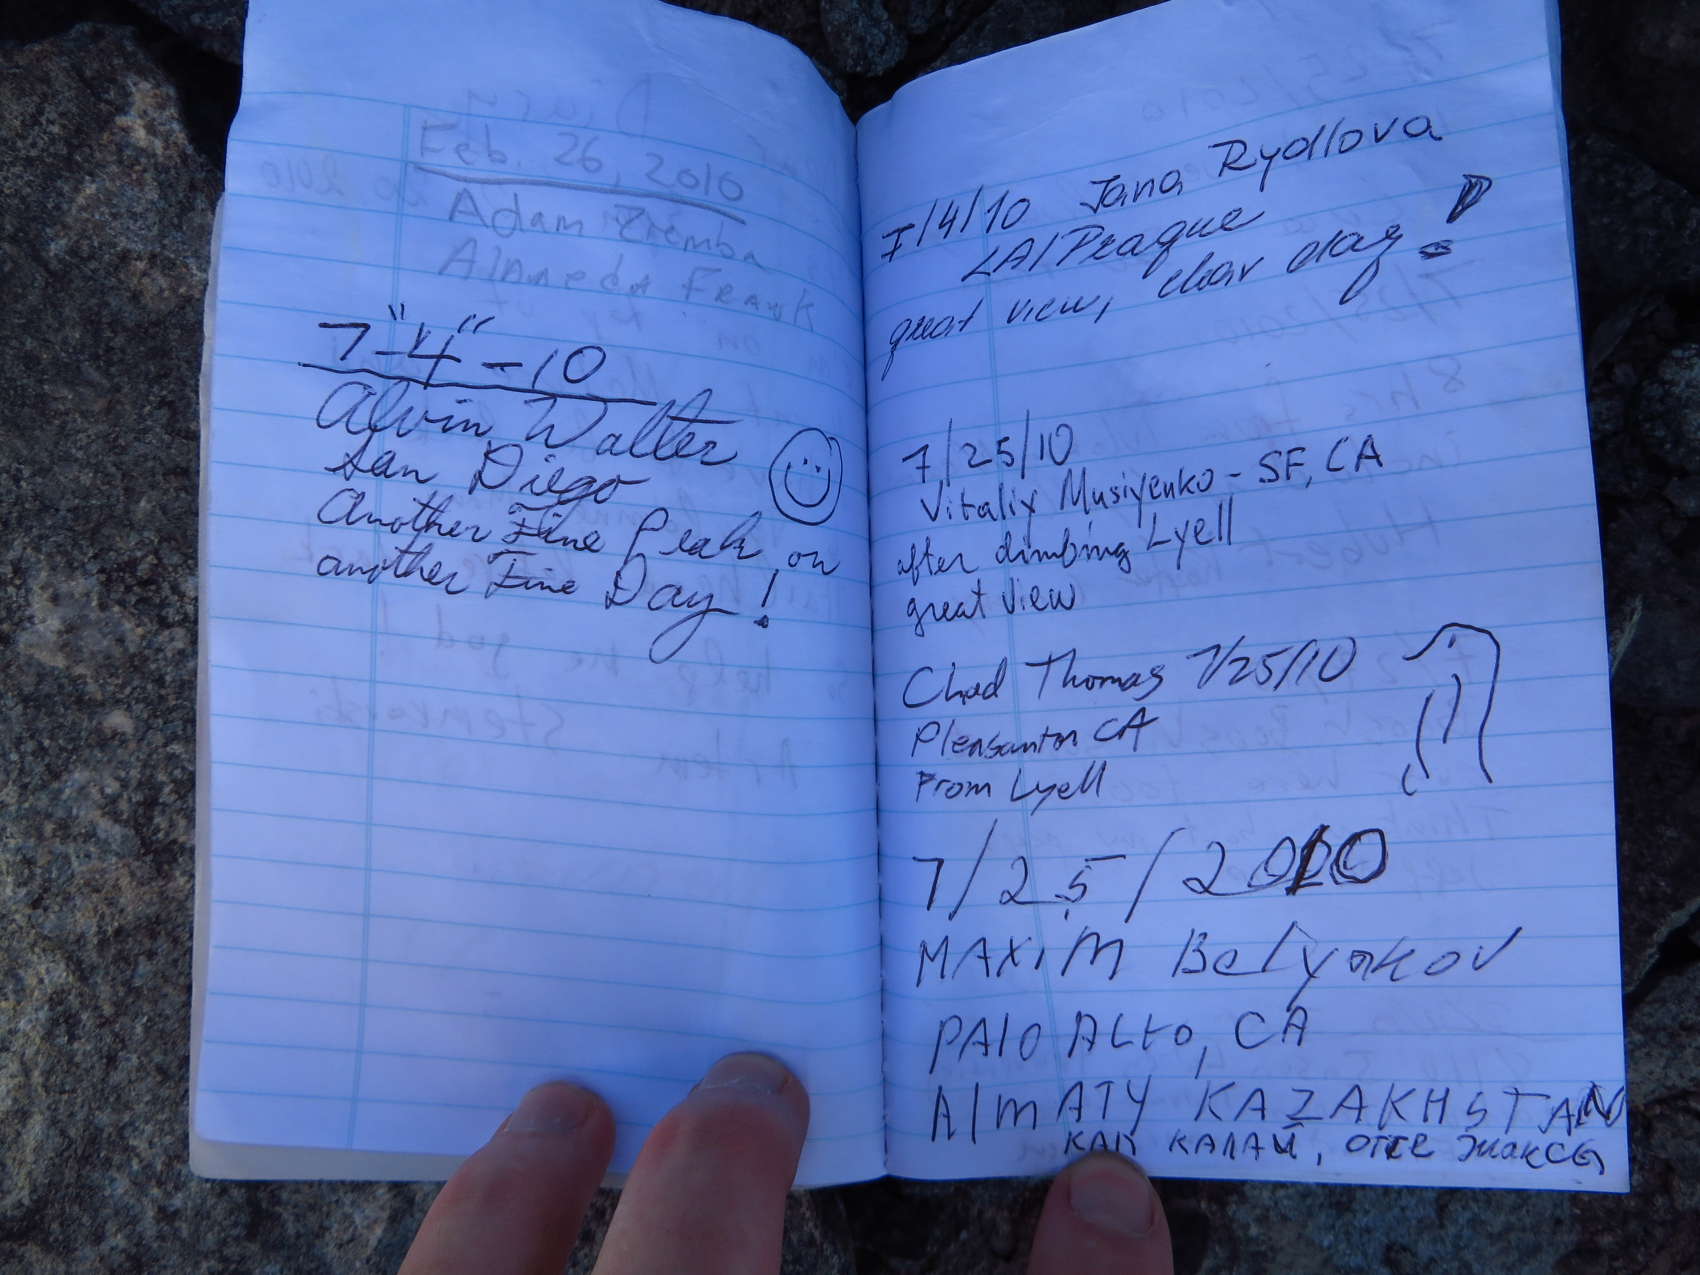 Feb. 26, 2010
Adam Zremba
Alameda Frank
7-"4"-10
Alvin Walter
San Diego
Another Fine Peak on
another Fine Day!
7/4/10 Jana Rydlova
LA/Prague
great view, clear day!
7/25/10
Vitaliy Musiyenko - SF, CA
after climbing Lyell
great view
Chad Thomas 7/25/10
Pleasanton CA
From Lyell
7/25/2010
MAXIM Belyakov
PAlO ALtO, CA
AlmATY KAZAKHSTAN
КАП КАЛАЙ, ОТЕ ЖАКСЫ